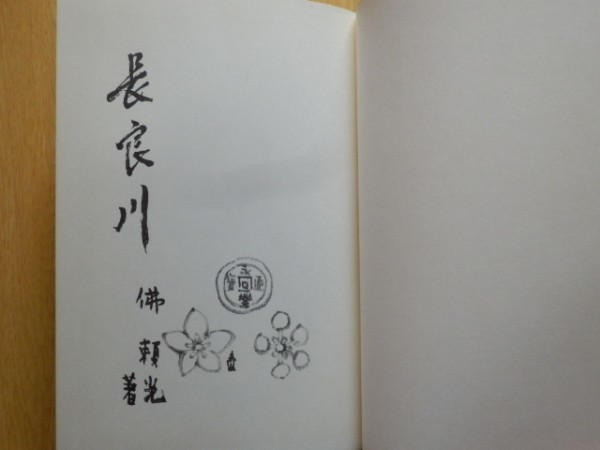 長良川
佛
頼光
著